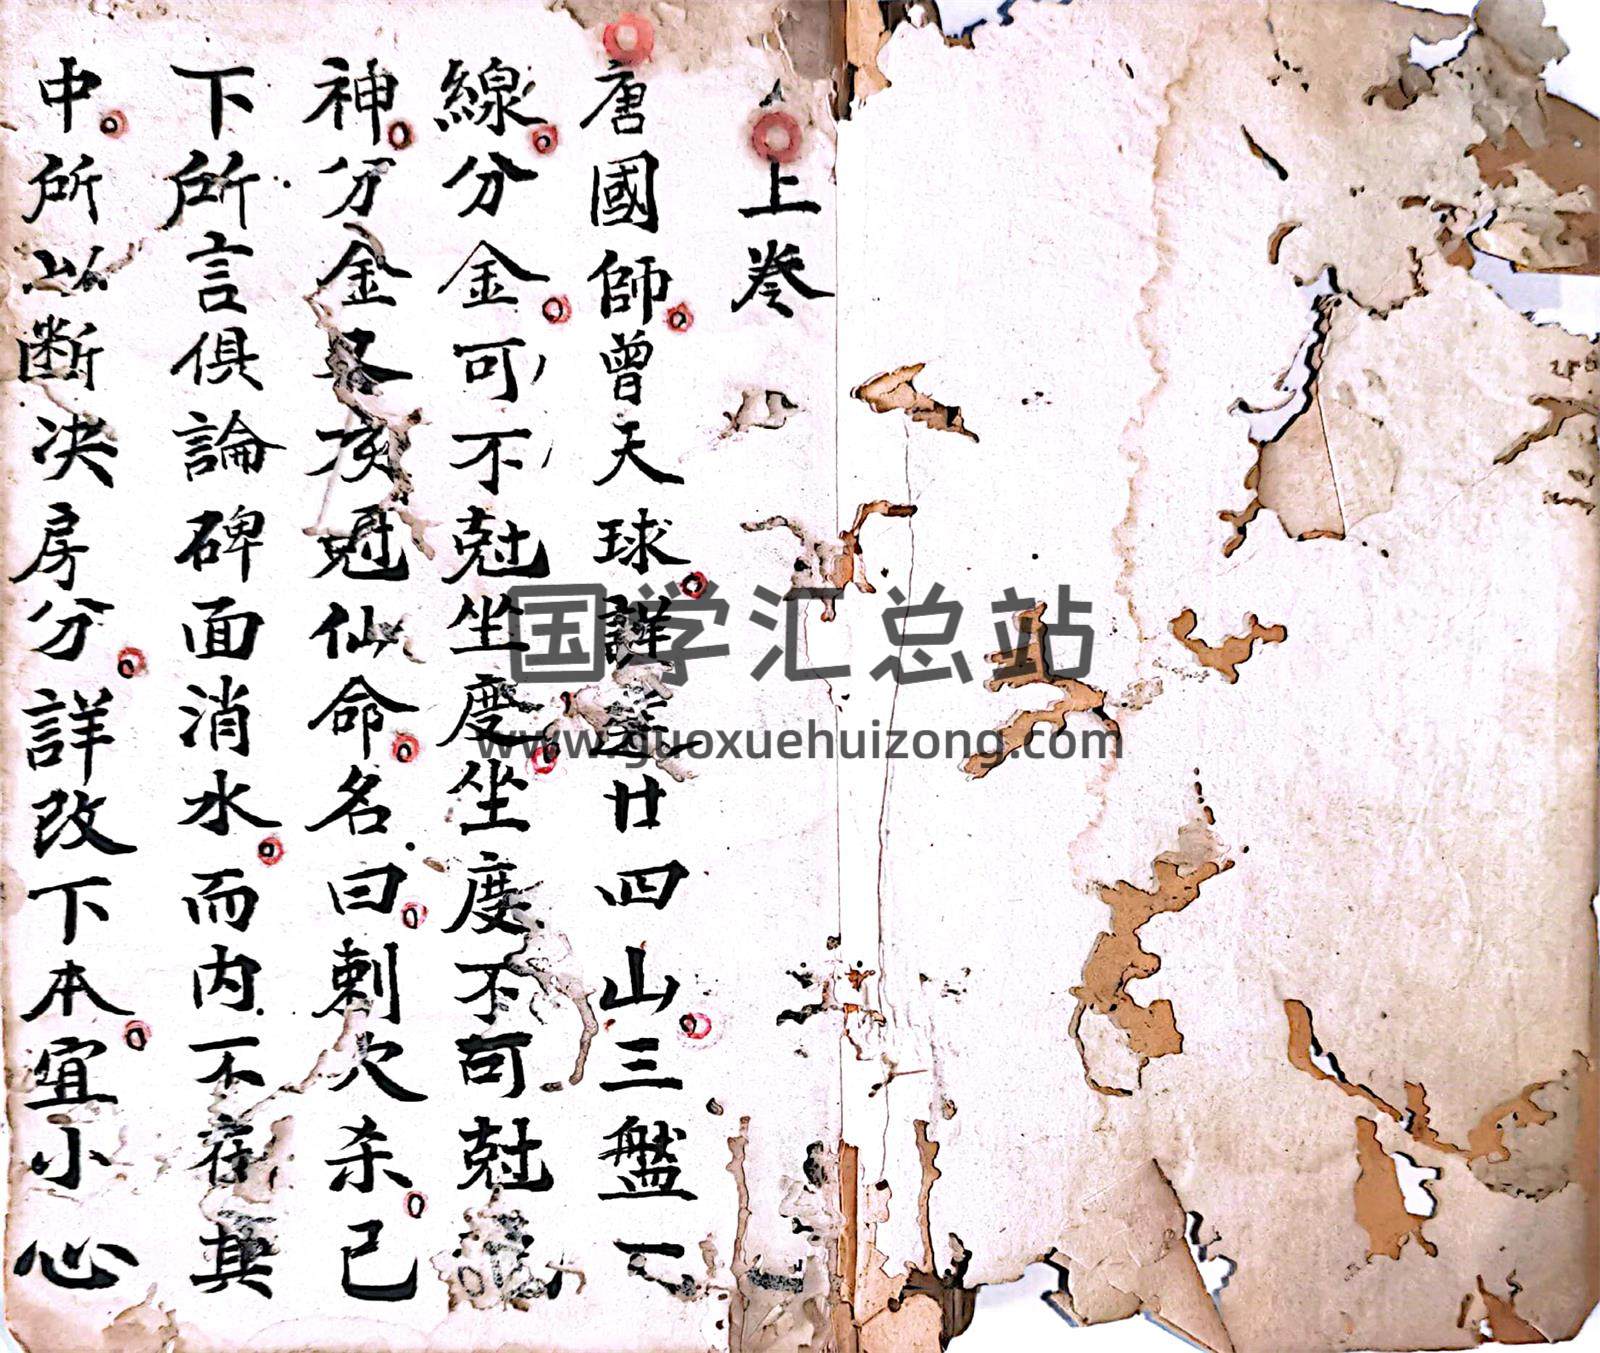 上卷
唐國師曾天球詳廿四山三盤一
線分金可不尅坐度坐度不可尅
神分金又亥冠仙命名曰剌穴杀已
下所言俱論碑面消水而内不在其
中所以断决房分詳改下本宜小心
国学汇总站
www.guoxuehuizong.com